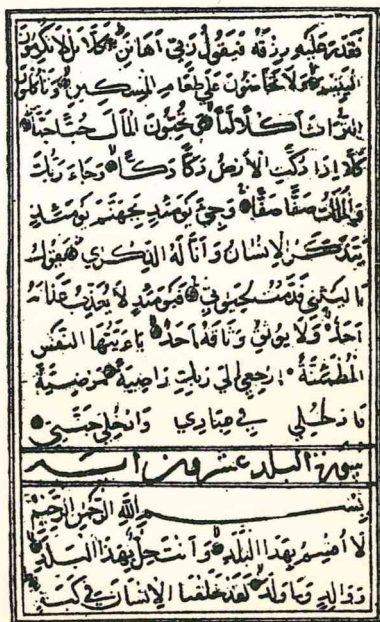 فَقَدَرَ عَلَيْهِ رِزْقَهُ فَيَقُولُ رَبِّي أَهَانَنِ كَلَّا بَل لَا تُكْرِمُونَ
اليَتِيمَ وَلَا تَحَاضُّونَ عَلَى طَعَامِ المِسْكِينِ وَتَأكُلُونَ
التُّرَاثَ أَكْلًا لَمًّا وَتُحِبُّونَ المَالَ حُبًّا جَمًّا
كَلَّا إِذَا دُكَّتِ الأَرْضُ دَكًّا دَكًّا وَجَاءَ رَبُّكَ
وَالمَلَكُ صَفًّا صَفًّا وَجِيءَ يَوْمَئِذٍ بِجَهَنَّمَ يَوْمَئِذٍ
يَتَذَكَّرُ الإِنْسَانُ وَأَنَّا لَهُ الذِّكْرَى فَيَقُولُ
يَا لَيْتَنِي قَدَّمْتُ لِحَيٰوتِي فَيَوْمَئِذٍ لَا يُعَذِّبُ عَذَابَهُ
أَحَدٌ وَلَا يُوثِقُ وَثَاقَهُ أَحَدٌ يَا ءَيَّتُهَا النَّفْسُ
المُطْمَئِنَّةُ ارْجِعِي إِلَى رَبِّكِ رَاضِيَةً مَرْضِيَّةً
فَادْخُلِي فِي عِبَادِي وَادْخُلِي جَنَّتِي
سورة البلد عشرون اية
بِسْمِ اللَّهِ الرَّحْمَنِ الرَّحِيمِ
لَا أُقْسِمُ بِهَذَا البَلَدِ وَأَنْتَ حِلٌّ بِهَذَا البَلَدِ
وَوَالِدٍ وَمَا وَلَدَ لَقَدْ خَلَقْنَا الإِنْسَانَ فِي كَبَدٍ